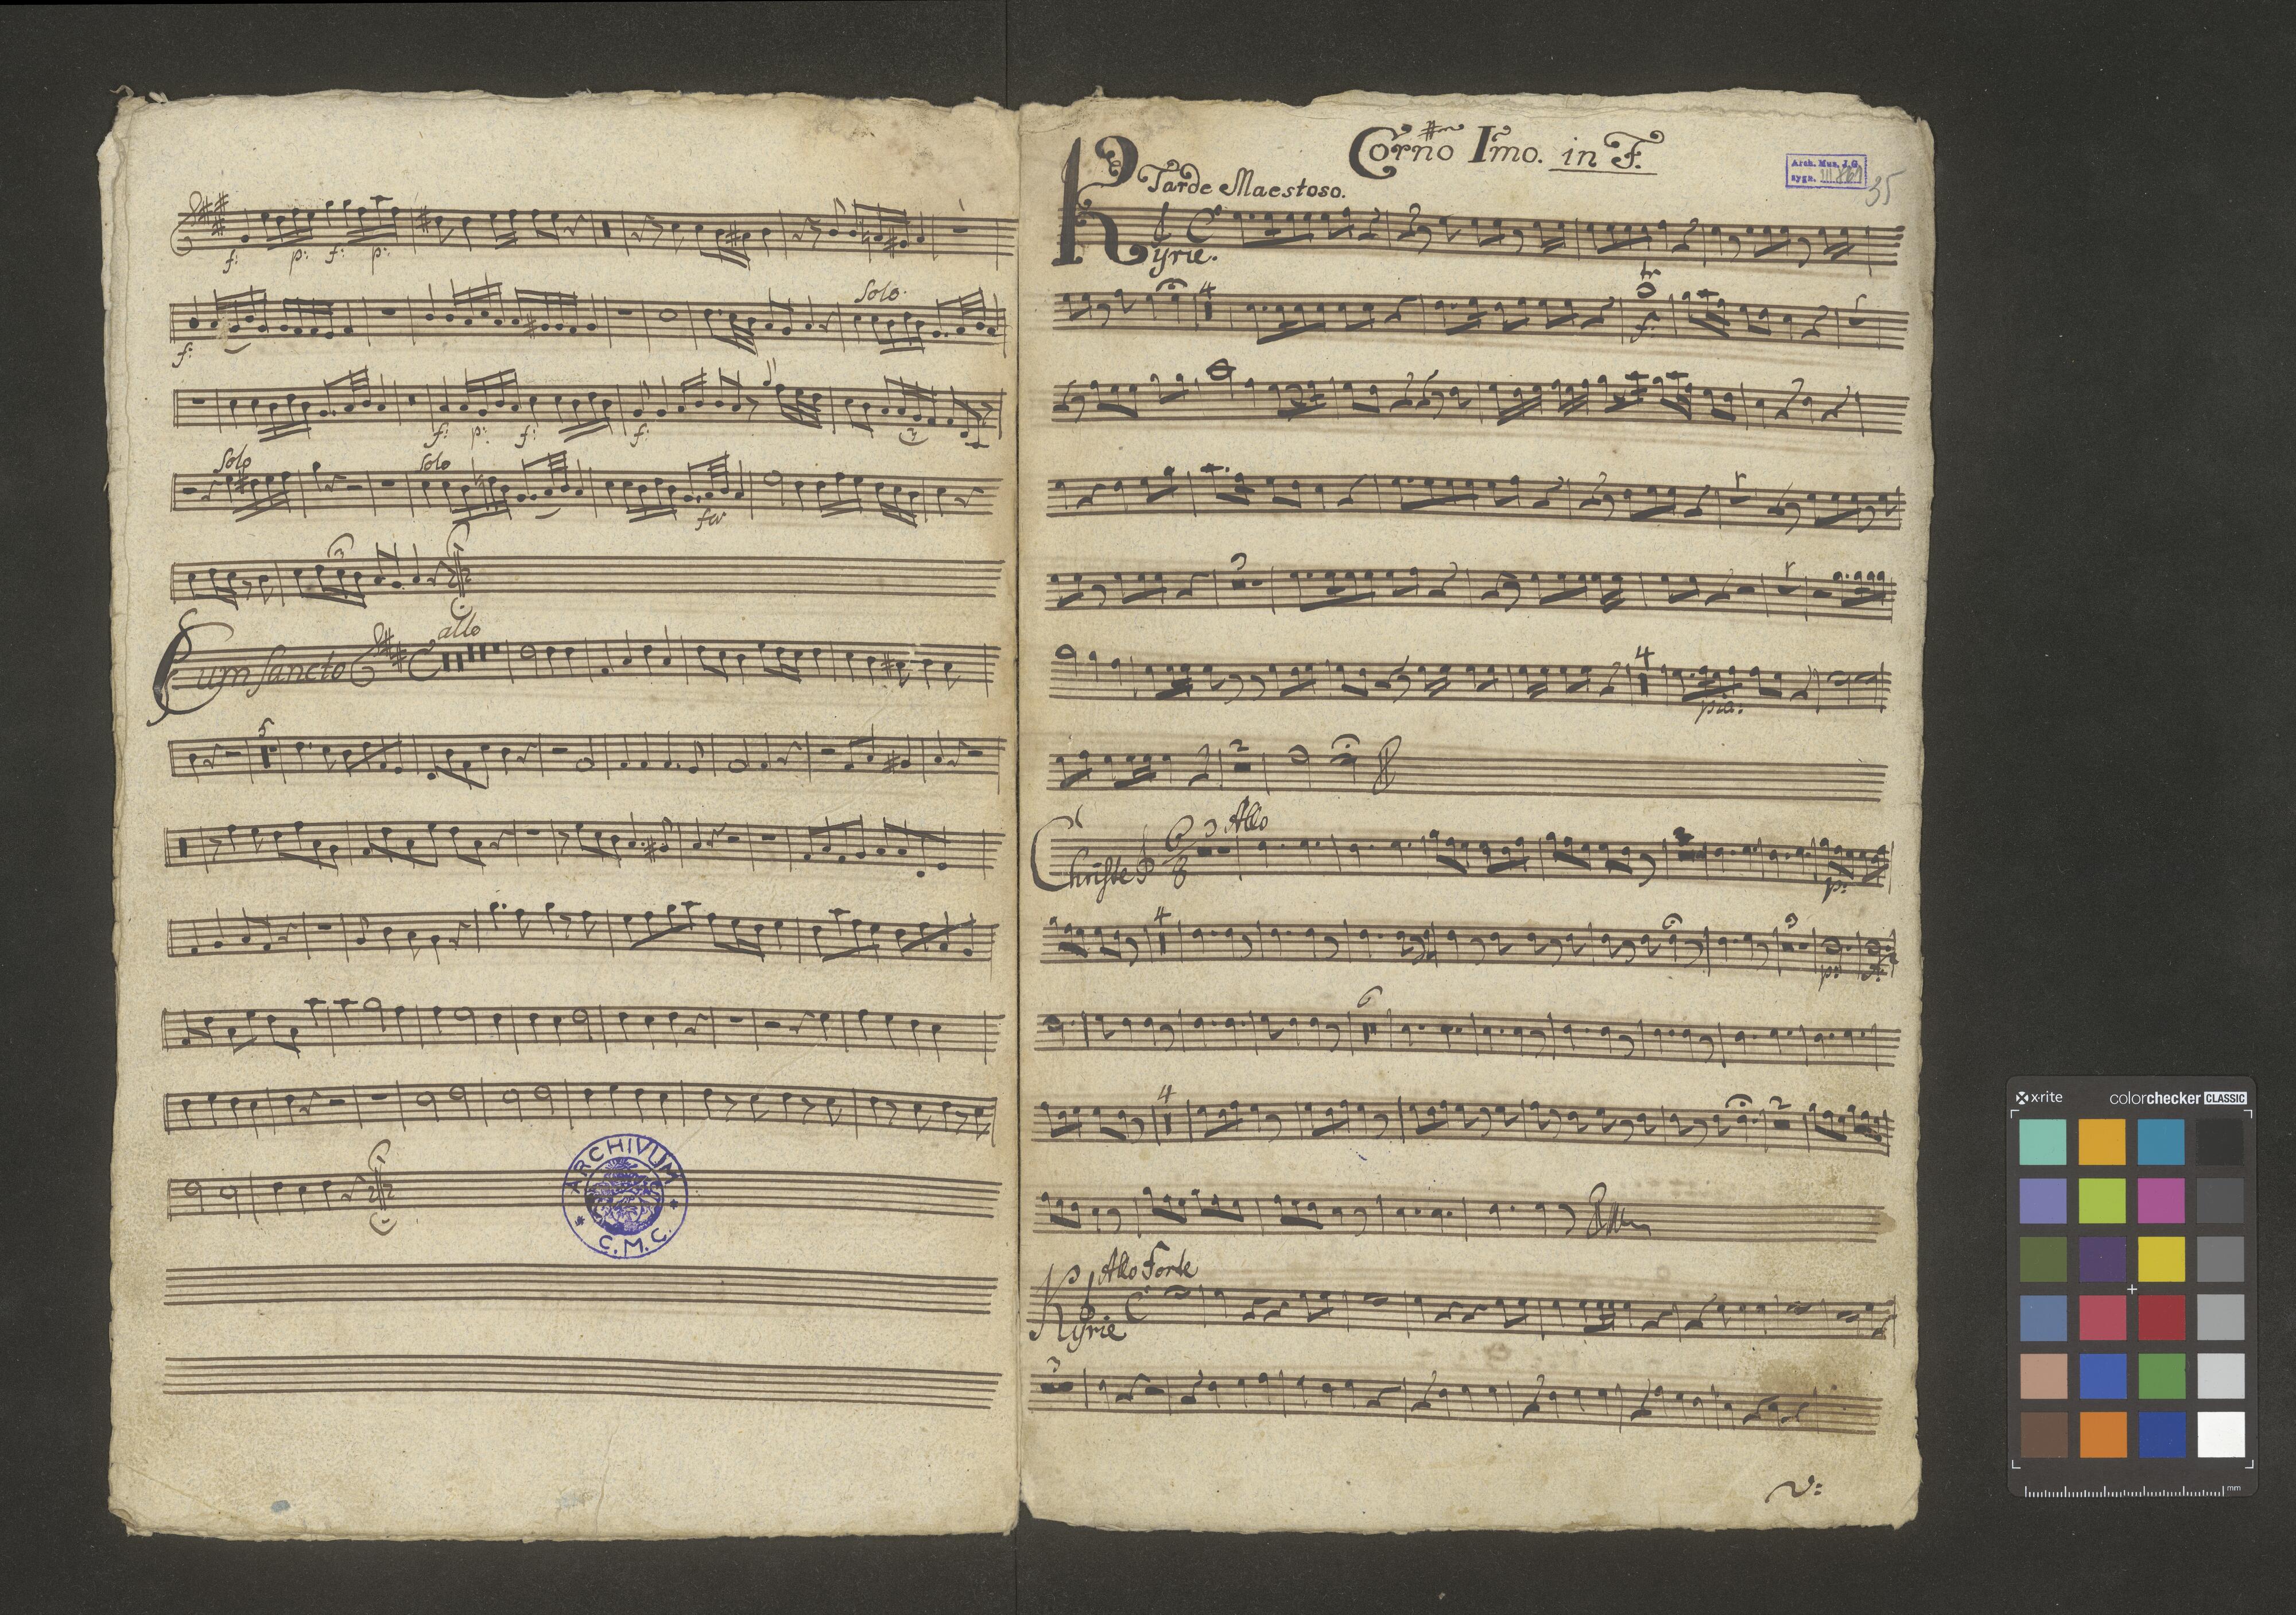 f: p: f: p:
Solo.
f:
f: p: f: f:
3
Solo Solo
for
3
allo
Cum Sancto
5
ARCHIVUM
C.M.C.
Corno Imo. in F.
Arch. Mus. J.G.
sygn. III
35
Tarde Maestoso.
Kyrie.
4 tr
f:
3
4
pia:
2
Allo
Christe 3 8
2
p:
4 3
pp f:
6
4 2
Allo Forte
Kyrie
3
V:
x-rite colorchecker CLASSIC
mm